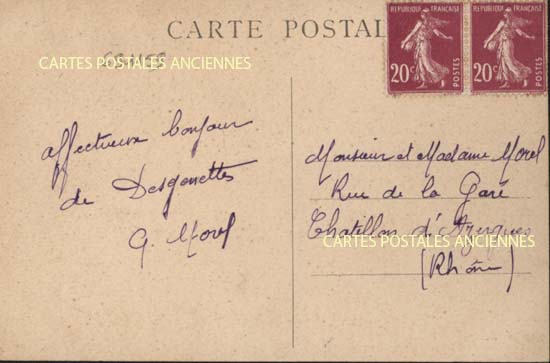 CARTE POSTALE
REPUBLIQUE FRANÇAISE
20c
POSTES
REPUBLIQUE FRANÇAISE
20c
POSTES
CARTES POSTALES ANCIENNES
affectueux bonjour
de Desgenettes
G. Morel
Monsieur et Madame Morel
Rue de la Gare
Chatillon d'Azergues
CARTES POSTALES ANCIENNES
(Rhône)